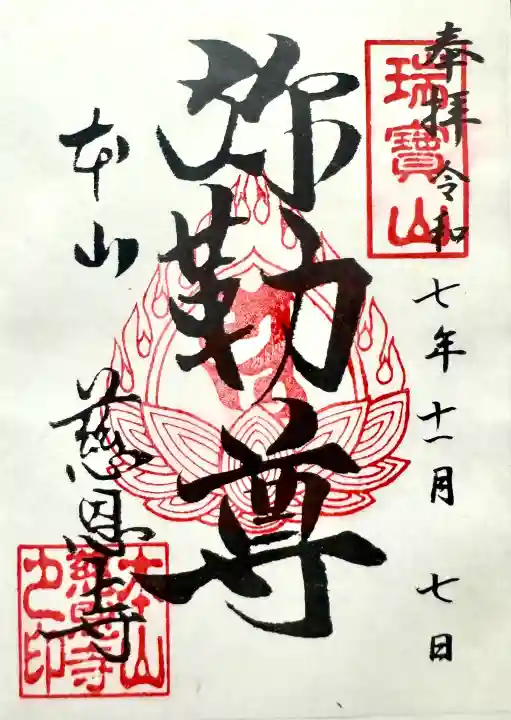 奉拝 令和七年十一月 七日
瑞寶山
弥勒尊
本山 慈恩寺
本山慈恩寺之印